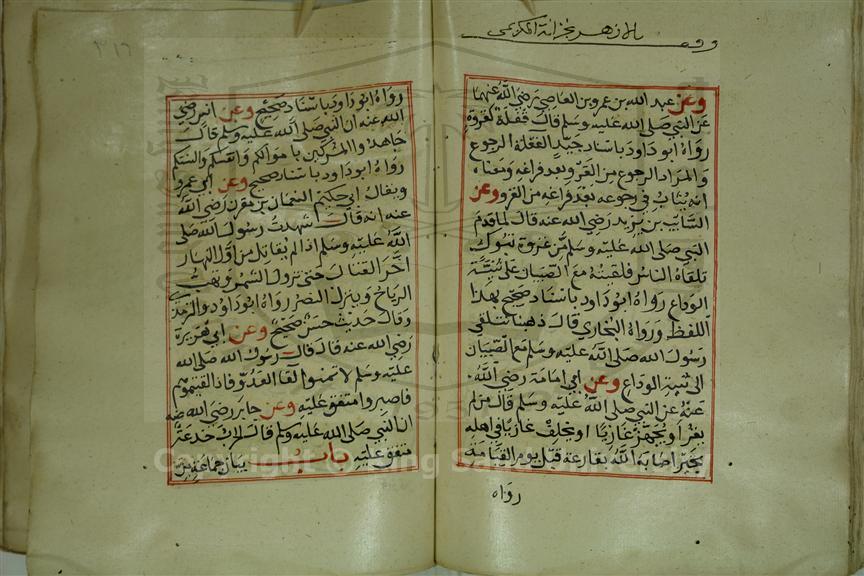 وقف
بالازهر بخزانة
وعن عبد الله بن عمرو بن العاصي رضي الله عنهما
عن النبي صلى الله عليه وسلم قال قفلة كغزوة
رواه ابو داود باسناد جيد القفلة الرجوع
والمراد الرجوع من الغزو بعد فراغه ومعناه
انه يثاب في رجوعه بعد فراغه من الغزو وعن
السايب بن يزيد رضي الله عنه قال لما قدم
النبي صلى الله عليه وسلم من غزوة تبوك
تلقاه الناس فلقيته مع الصبيان على ثنية
الوداع رواه ابو داود باسناد صحيح بهذا
اللفظ ورواه البخاري قال ذهبنا نتلقى
رسول الله صلى الله عليه وسلم مع الصبيان
الى ثنية الوداع وعن ابي امامة رضي الله
عنه عن النبي صلى الله عليه وسلم قال من لم
يغز او يجهز غازيا او يخلف غازيا في اهله
بخير اصابه الله بقارعة قبل يوم القيامة
رواه
٣١٦
رواه ابو داود باسناد صحيح وعن انس رضي
الله عنه ان النبي صلى الله عليه وسلم قال
جاهدوا المشركين باموالكم وانفسكم والسنتكم
رواه ابو داود باسناد صحيح وعن ابي عمرو
ويقال ابي حكيم النعمان بن مقرن رضي الله
عنه انه قال شهدت رسول الله صلى
الله عليه وسلم اذا لم يقاتل من اول النهار
اخر القتال حتى تزول الشمس وتهب
الرياح وينزل النصر رواه ابو داود والترمذي
وقال حديث حسن صحيح وعن ابي هريرة
رضي الله عنه قال قال رسول الله صلى الله
عليه وسلم لا تمنوا لقا العدو فاذا لقيتموهم
فاصبروا متفق عليه وعن جابر رضي الله عنه
ان النبي صلى الله عليه وسلم قال الحرب خدعة
متفق عليه باب بيان جماعة من